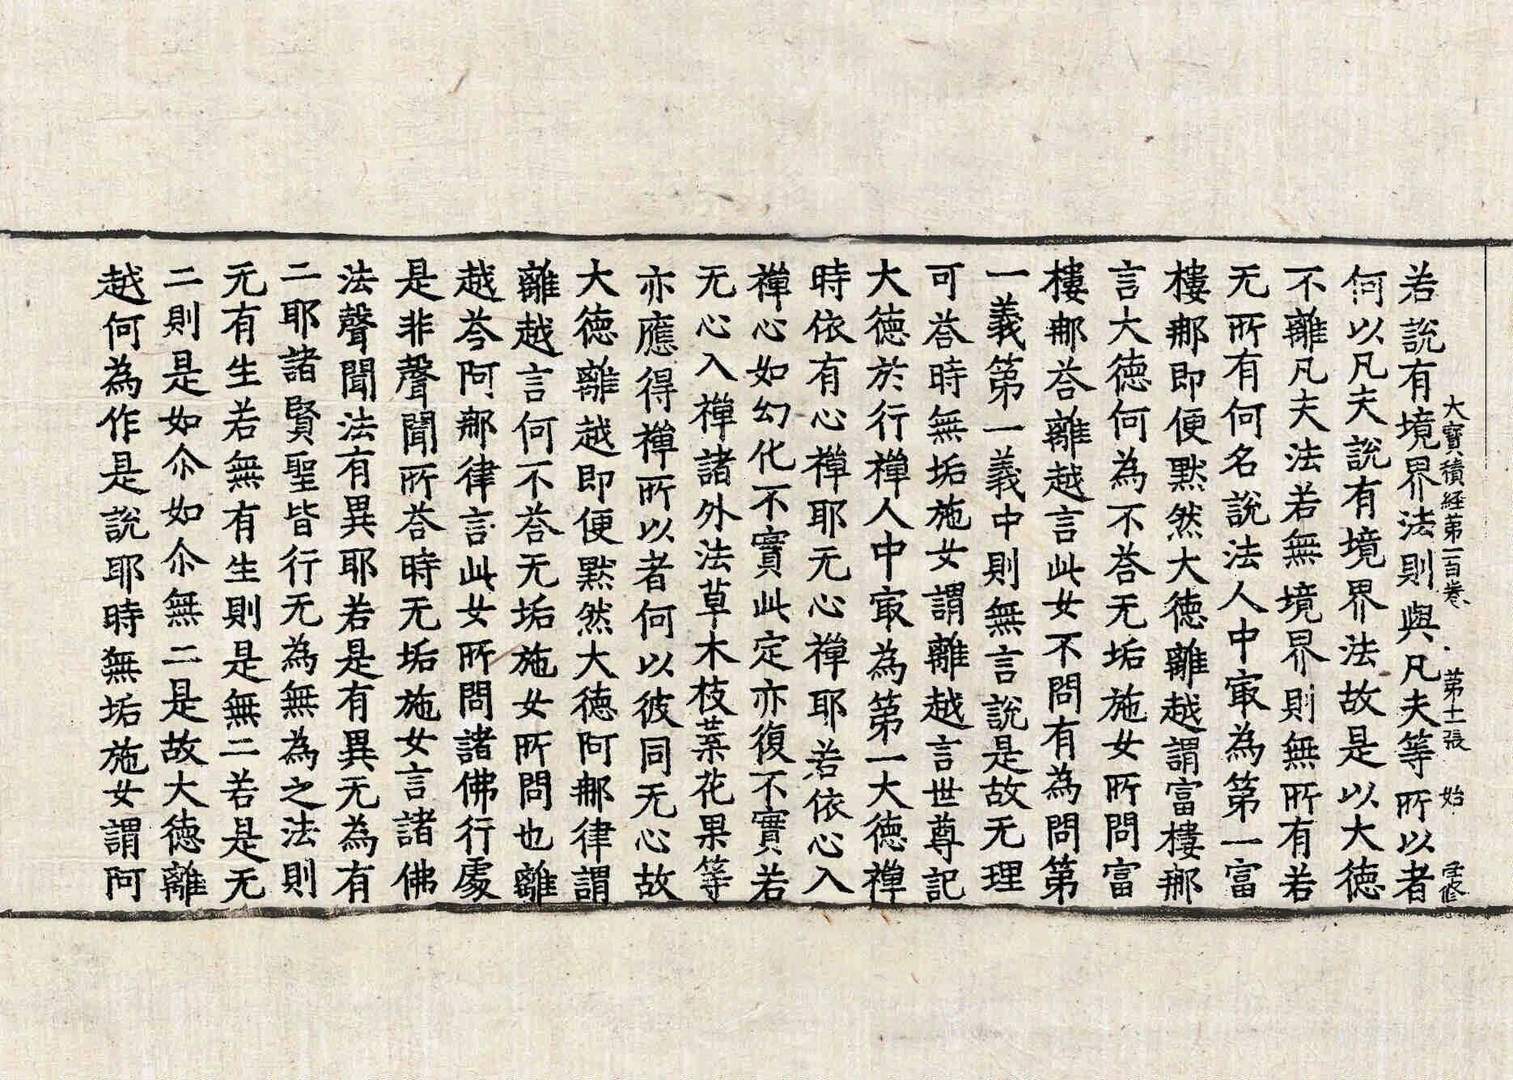 大寶積經第一百卷 第十二張 始
若說有境界法則與凡夫等所以者
何以凡夫說有境界法故是以大德
不離凡夫法若無境界則無所有若
无所有何名說法人中㝡為第一富
樓那即便默然大德離越謂富樓那
言大德何為不荅无垢施女所問富
樓那荅離越言此女不問有為問第
一義第一義中則無言說是故无理
可荅時無垢施女謂離越言世尊記
大德於行禪人中㝡為第一大德禪
時依有心禪耶无心禪耶若依心入
禪心如幻化不實此定亦復不實若
无心入禪諸外法草木枝葉花果等
亦應得禪所以者何以彼同无心故
大德離越即便默然大德阿那律謂
離越言何不荅无垢施女所問也離
越荅阿那律言此女所問諸佛行處
是非聲聞所荅時无垢施女言諸佛
法聲聞法有異耶若是有異无為有
二耶諸賢聖皆行无為無為之法則
无有生若無有生則是無二若是无
二則是如尒如尒無二是故大德離
越何為作是說耶時無垢施女謂阿